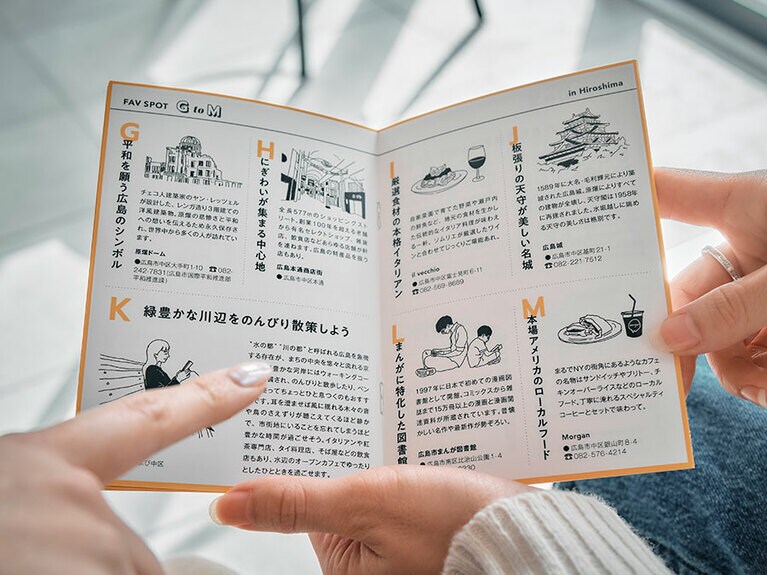 FAV SPOT G to M
in Hiroshima
G
平和を願う広島のシンボル
チェコ人建築家のヤン・レッツェル
が設計した、レンガ造り3階建ての
洋風建築物。原爆の悲惨さと平和
への想いを伝えるため永久保存さ
れ、世界中から多くの人が訪れてい
ます。
原爆ドーム
●広島市中区大手町1-10 ☎082-
242-7831(広島市国際平和推進部
平和推進課)
H
にぎわいが集まる中心地
全長577mのショッピングスト
リート。創業100年を超える老舗
から有名セレクトショップ、雑貨
店、飲食店などあらゆる店舗が軒
を連ねます。広島の特産品を扱う
店もあり。
広島本通商店街
●広島市中区本通
I
厳選食材の本格イタリアン
自家菜園で育てた野菜や瀬戸内
の鮮魚など、地元の食材を生かし
た伝統的なイタリア料理が味わえ
る一軒。ソムリエが厳選したワイ
ンと合わせてじっくりご堪能あれ。
il vecchio
●広島市中区富士見町6-11
☎082-569-8689
J
板張りの天守が美しい名城
1589年に大名・毛利輝元により築
城された広島城。原爆によりすべて
の建物が全壊し、天守閣は1958年
に再建されました。水堀越しに眺め
る天守の美しさは格別です。
広島城
●広島市中区基町21-1
☎082-221-7512
K
緑豊かな川辺をのんびり散策しよう
“水の都”“川の都”と呼ばれる広島を象徴
する存在が、まちの中央を悠々と流れる京
豊かな河岸にはウォーキングコー
備され、のんびりと散歩したり、ベン
座ってちょっとひと息つくのもおす
です。耳を澄ませば風に揺れる木々の音
や鳥のさえずりが聴こえてくるほど静か
で、市街地にいることを忘れてしまうほど
豊かな時間が過ごせそう。イタリアンや紅
茶専門店、タイ料理店、そば屋などの飲食
店もあり、水辺のオープンカフェでゆったり
としたひとときを過ごせます。
中区
L
まんがに特化した図書館
1997年に日本で初めての漫画図
書館として開館。コミックスから雑
誌まで15万冊以上の漫画と漫画関
連資料が所蔵されています。昔懐
かしい名作や最新作が勢ぞろい。
広島市まんが図書館
●広島市南区比治山公園1-4
M
本場アメリカのローカルフード
まるでNYの街角にあるようなカフェ
の名物はサンドイッチやブリトー、チ
キンオーバーライスなどのローカル
フード。丁寧に淹れるスペシャルティ
コーヒーとセットで味わって。
Morgan
●広島市中区銀山町8-4
☎082-576-4214